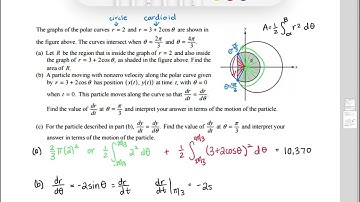 circle cardioid
The graphs of the polar curves r = 2 and r = 3 + 2cos θ are shown in
the figure above. The curves intersect when θ = 2π/3 and θ = 4π/3.
(a) Let R be the region that is inside the graph of r = 2 and also inside
the graph of r = 3 + 2cos θ, as shaded in the figure above. Find the
area of R.
(b) A particle moving with nonzero velocity along the polar curve given
by r = 3 + 2cos θ has position (x(t), y(t)) at time t, with θ = 0
when t = 0. This particle moves along the curve so that dr/dt = dr/dθ.
Find the value of dr/dt at θ = π/3 and interpret your answer in terms of the motion of the particle.
(c) For the particle described in part (b), dy/dt = dy/dθ. Find the value of dy/dt at θ = π/3 and interpret your
answer in terms of the motion of the particle.
A = 1/2 ∫_α^β r² dθ
(a) 2/3 π(2)² or 1/2 ∫ 2² dθ + 1/2 ∫ (3+2cosθ)² dθ = 10.370
(b) dr/dθ = -2sinθ = dr/dt dr/dt | π/3 = -2s